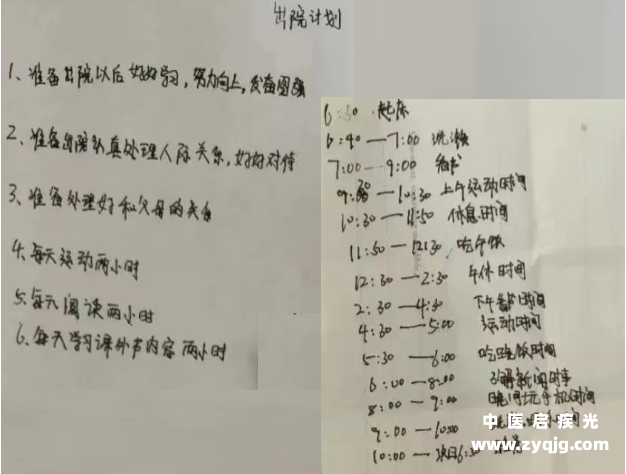 出院计划
1、准备出院以后好好学习，努力向上，发奋图强
2、准备出院认真处理人际关系，好好对待
3、准备处理好和父母的关系
4、每天运动两小时
5、每天阅读两小时
6、每天学习课外书内容两小时
6:30 起床
6:40—7:00 洗漱
7:00—9:00 看书
9:30—10:30 上午运动时间
10:30—11:50 休息时间
11:50—12:30 吃午饭
12:30—2:30 午休时间
2:30—4:30 下午看书时间
4:30—5:00 运动时间
5:30—6:00 吃晚饭时间
6:00—8:00 了解新闻时事
8:00—9:00 晚间玩手机时间
9:00—10:00 时间
10:00—次日6:30
中医启疾光
www.zyqjg.com